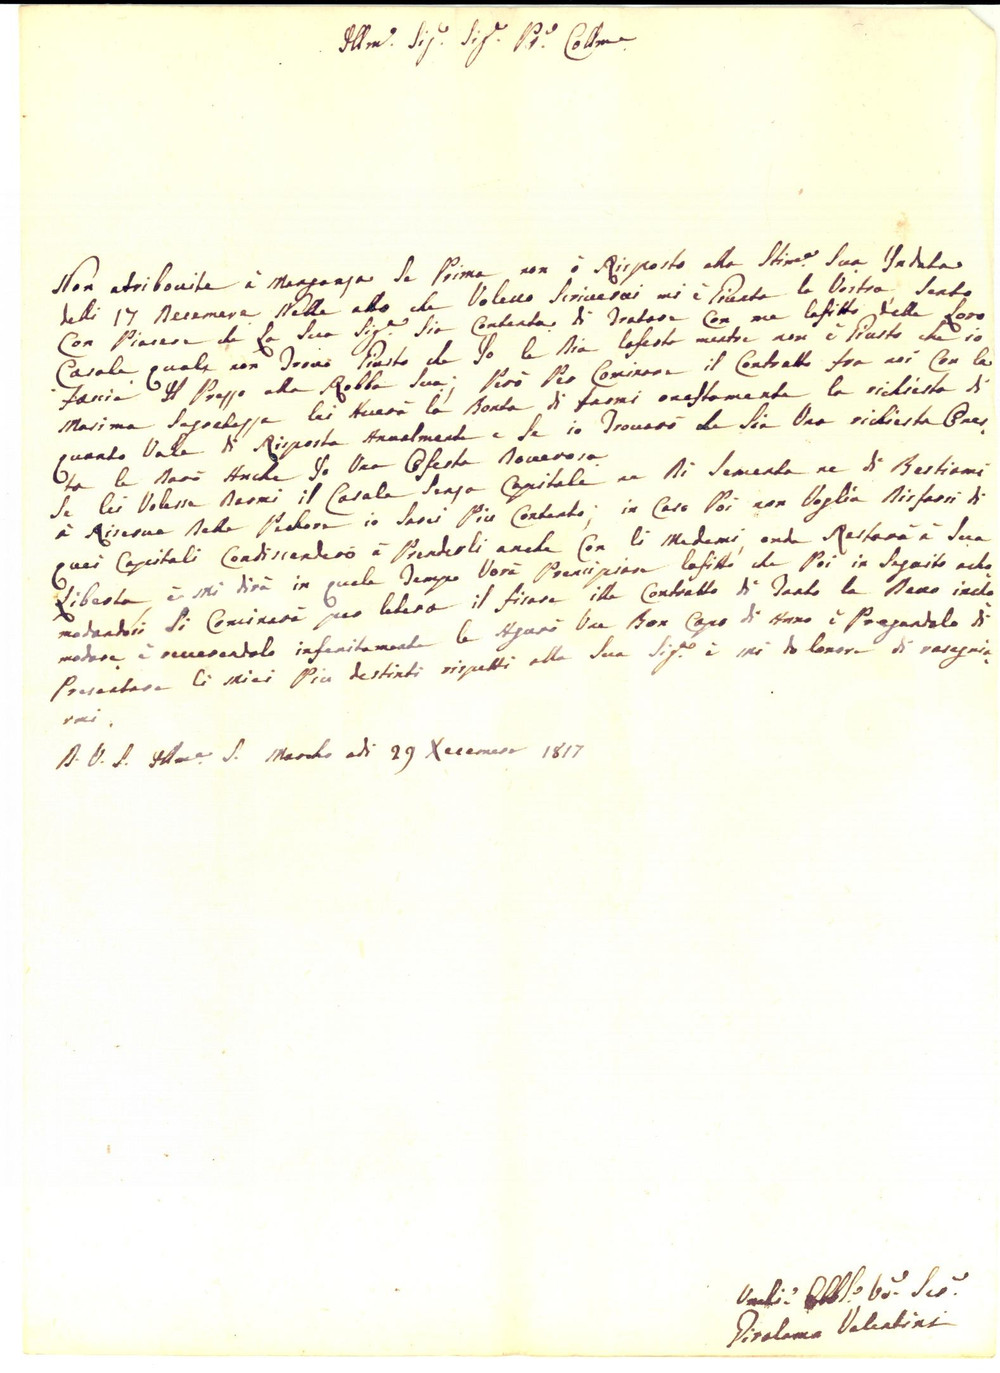 Illmo. Sigr. Sigr. Pn. Collmo.
Non atribouite à Mancanza se Prima non ò Risposto alla Stima. Sua Indata
delli 17 Decembre Nelle atto che Voleuo Scriuerui mi è Giunta la Vostra, Sento
Con Piacere che La Sua Siga. Sia Contenta di Tratare Con me lafitto delle Loro
Casale quale non Trouo Giusto che Io le Dia lofesta mentre non è Giusto che io
fascia Il Prezzo alla Robba Sua; Però Per Cominare il Contratto fra noi Con la
Masima Segretezza lei Hauerà la Bontà di farmi onestamente la richiesta di
quanto Vale di Risposta Annualmente e Se io Trouarò che Sia Una richiesta Ones
ta le Darò Anche Io Una Ofesta Douerosa
Se lei Volesse Darmi il Casale Senza Capitale ne Di Sementa ne di Bestiami
à Riserua Delle Pechore io Sarei Piu Contento; in Caso Poi non Voglia Disfarsi di
quei Capitali Condiscenderò à Prenderli anche Con li Medemi, onde Restarà à Sua
Liberta, è Mi dirà in quele Tempo Vorà Prencipiare lafitto che Poi in Seguito acho
modandosi Si Cominarà per letera il fisare ille Contratto di Tanto la Deuo inco
modare, è riuerendolo infenitamente le Aguro Une Bon Capo di Anno è Pregandolo di
Presentare li Miei Piu destinti rispetti alla Sua Siga. è mi do lonore di rasegnia
rmi.
D. V. S. Illma. S. Marcho adi 29 Xecembre 1817
Umli. Obblo. Vo. Sero.
Girolamo Valentini